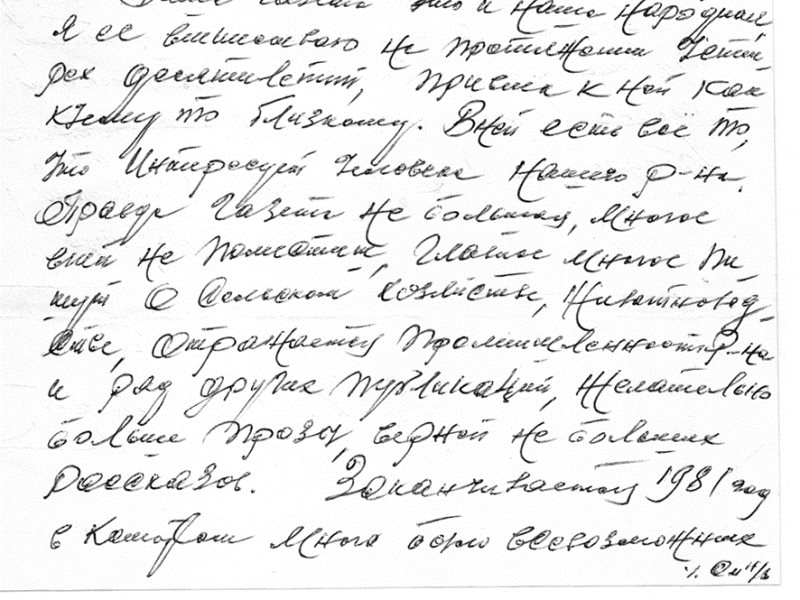 газета это и наша народная,
я ее выписываю на протяжении четы-
рех десятилетий, привык к ней как
к чему то близкому. В ней есть всё то,
что интересует человека нашего р-на.
Правда газета не большая, многое
в ней не поместить, главное много пи-
шут о сельском хозяйстве, животновод-
стве, отражается промышленность р-на
и ряд других публикаций, желательно
больше прозы, не больших
рассказов. Заканчивается 1981 год
в котором много было всевозможных